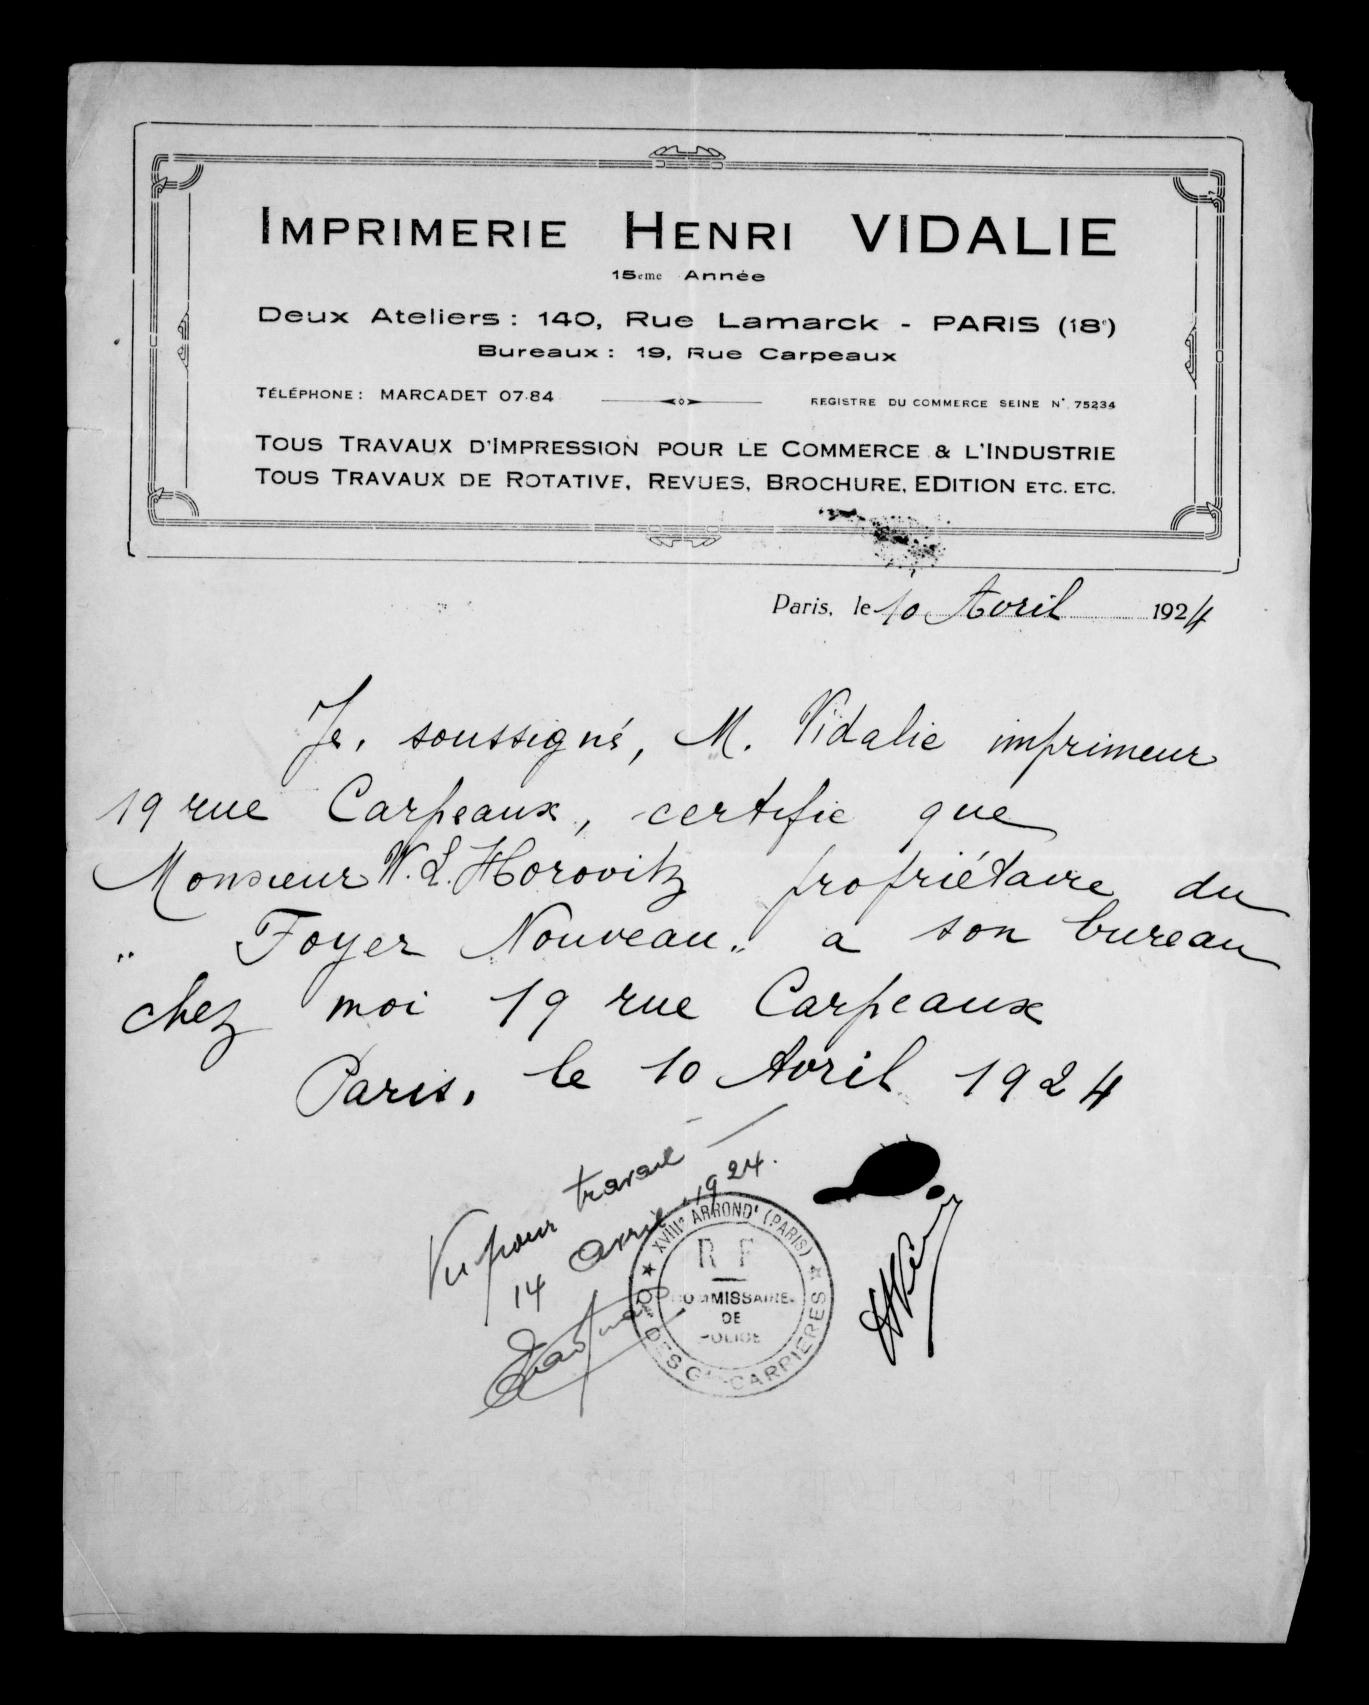 IMPRIMERIE HENRI VIDALIE
15eme Année
Deux Ateliers : 140, Rue Lamarck - PARIS (18e)
Bureaux : 19, Rue Carpeaux
TÉLÉPHONE : MARCADET 07.84
REGISTRE DU COMMERCE SEINE N° 75234
TOUS TRAVAUX D'IMPRESSION POUR LE COMMERCE & L'INDUSTRIE
TOUS TRAVAUX DE ROTATIVE, REVUES, BROCHURE, EDITION ETC. ETC.
Paris, le 10 Avril 1924
Je, soussigné, M. Vidalie imprimeur
19 rue Carpeaux, certifie que
Monsieur W. L. Horovitz propriétaire du
" Foyer Nouveau " a son bureau
chez moi 19 rue Carpeaux
Paris, le 10 Avril 1924
Vu pour travail
14 avril 1924.
XVIIIe ARRONDt (PARIS)
R F
COMMISSAIRE
DE
POLICE
DES Gdes CARRIÈRES